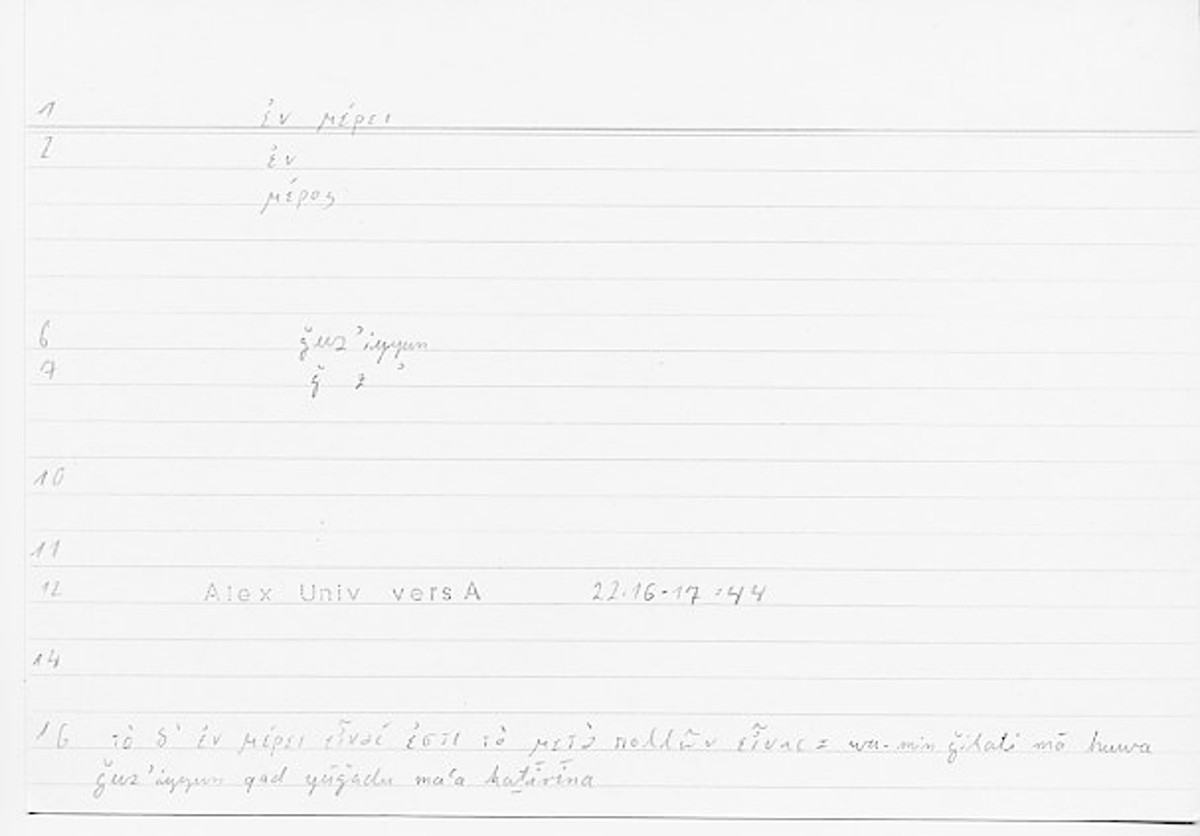 1 ἐν μέρει
2 ἐν
μέρος
6 ǧuz’iyyun
7 ǧ z ’
10
11
12 Alex Univ vers A 22.16-17 :44
14
16 τὸ δ’ ἐν μέρει εἶναί ἐστι τὸ μετὰ πολλῶν εἶναι = wa-min ǧihati mā huwa
ǧuz’iyyun qad yūǧadu ma‘a kaṯīrīna